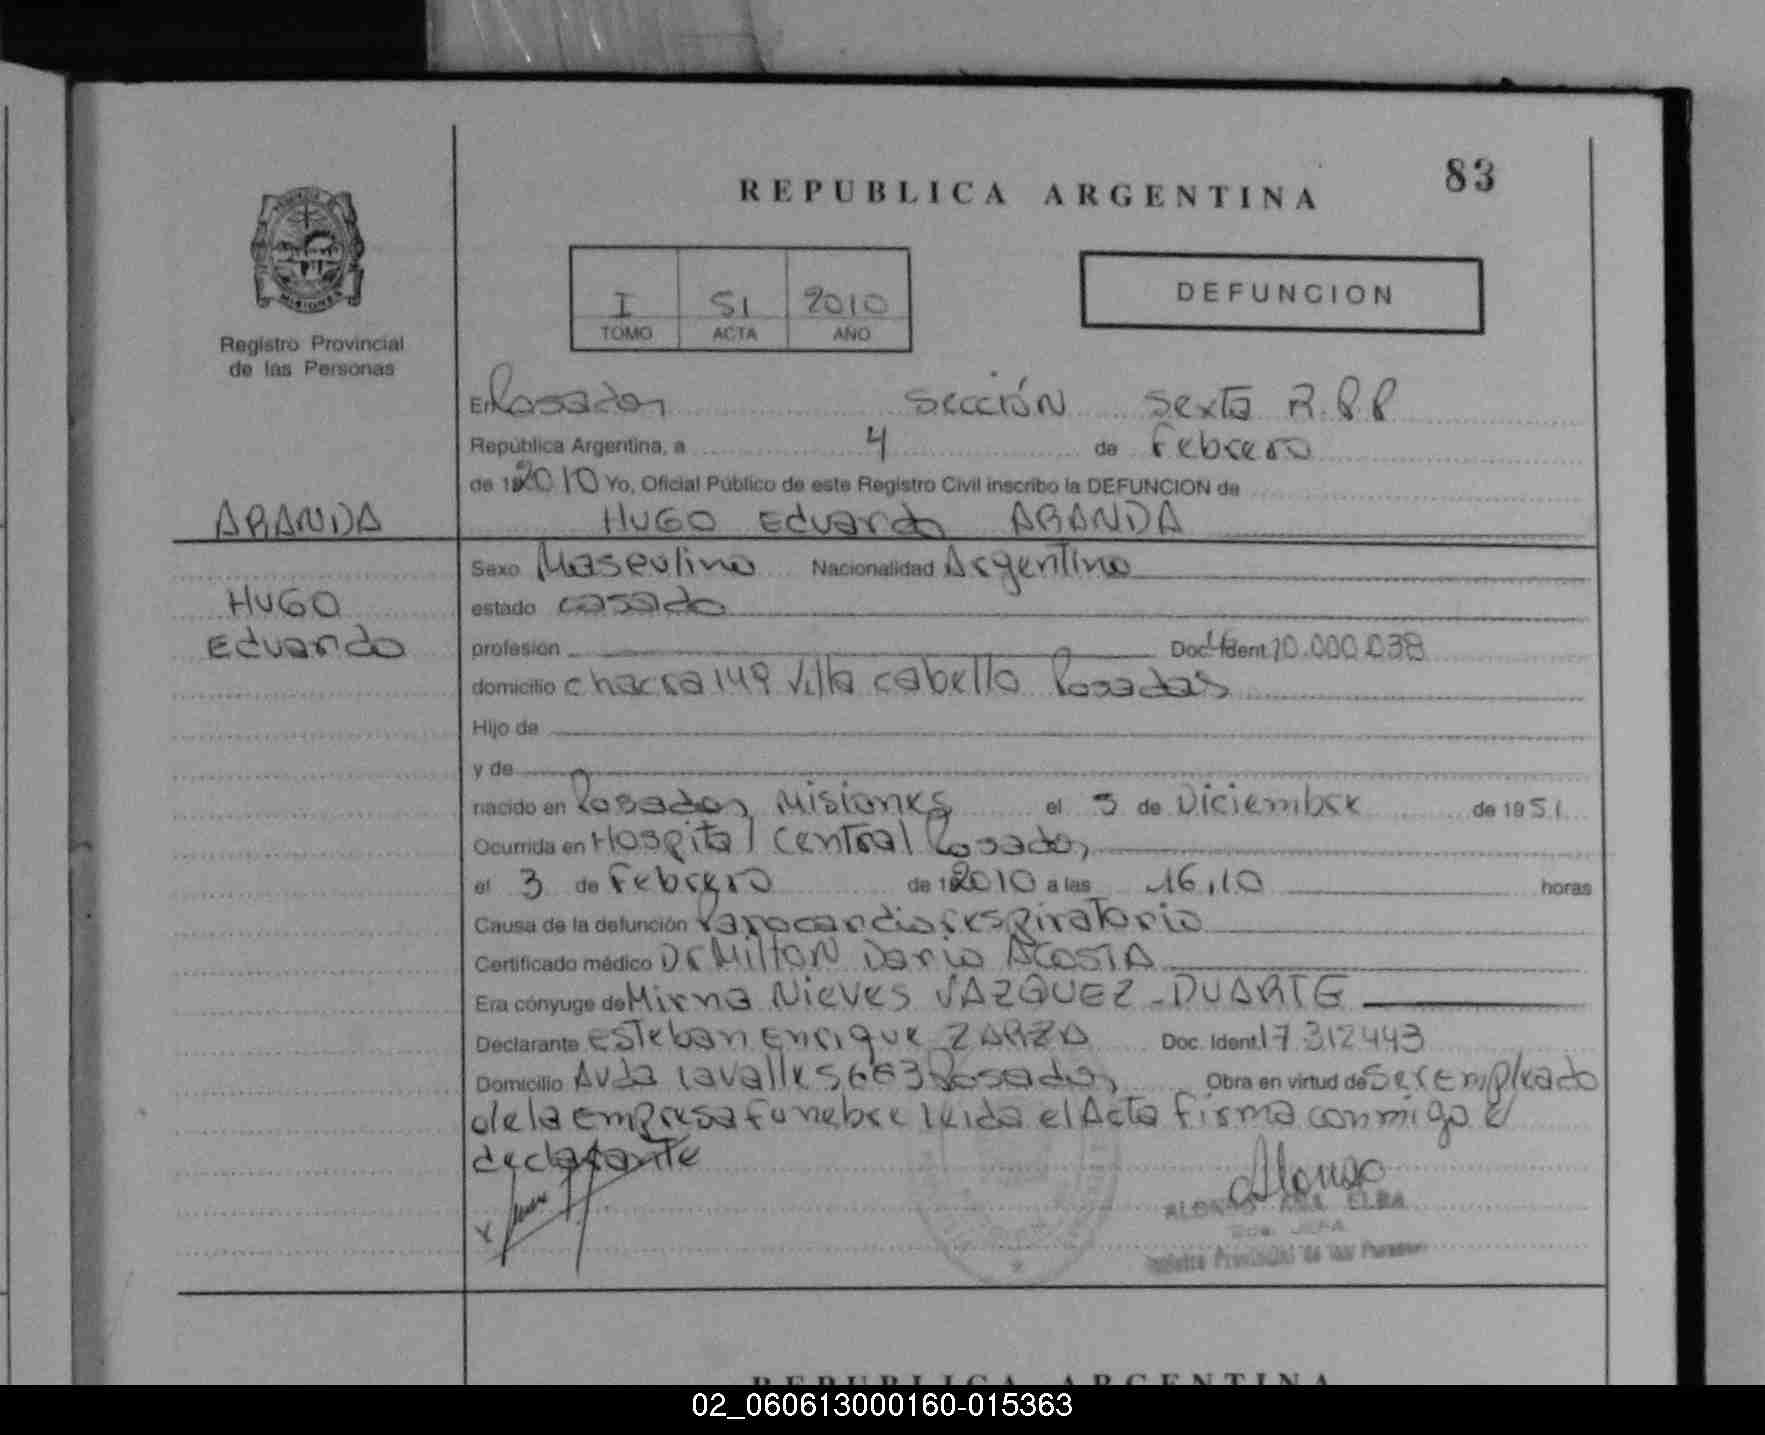 83
REPUBLICA ARGENTINA
DEFUNCION
I 51 2010
TOMO ACTA AÑO
MISIONES
Registro Provincial
de las Personas
En Posadas Sección Sexta R.P.P
República Argentina, a 4 de Febrero
de 2010 Yo, Oficial Público de este Registro Civil inscribo la DEFUNCION de
ARANDA
HUGO Eduardo ARANDA
Sexo Masculino Nacionalidad Argentina
HUGO
estado casado
Eduardo
profesión Doc. Ident. 10.000.038
domicilio chacra 149 Villa cabello Posadas
Hijo de
y de
nacido en Posadas, Misiones el 5 de Diciembre de 1951
Ocurrida en Hospital Central Posadas
el 3 de Febrero de 2010 a las 16,10 horas
Causa de la defunción Parocardiorespiratorio
Certificado médico Dr Milton Dario ACOSTA
Era cónyuge de Mirna Nieves VAZQUEZ-DUARTE
Declarante Esteban Enrique ZARZA Doc. Ident. 17.312443
Domicilio Avda lavalle 5663 Posadas, Obra en virtud de Ser empleado
de la empresa funebre leida el Acta firma conmigo el
declarante
Alonso
ALONSO ANA ELBA
Registro Provincial de las Personas
REPUBLICA ARGENTINA
02_060613000160-015363